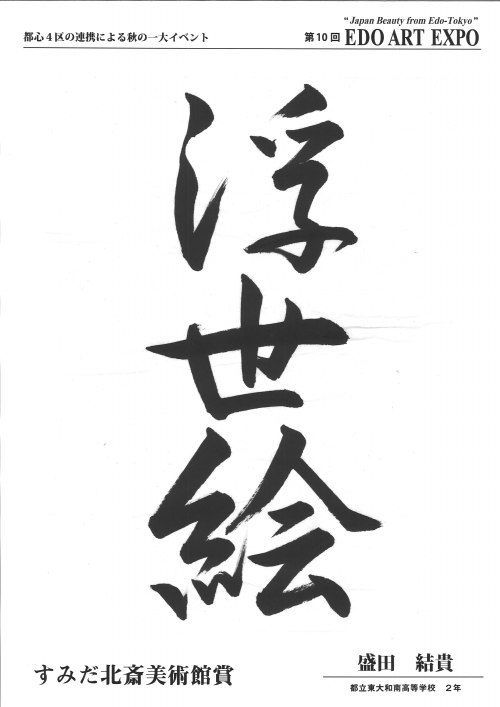 都心4区の連携による秋の一大イベント
"Japan Beauty from Edo-Tokyo"
第10回 EDO ART EXPO
浮世絵
すみだ北斎美術館賞
盛田 結貴
都立東大和南高等学校 2年